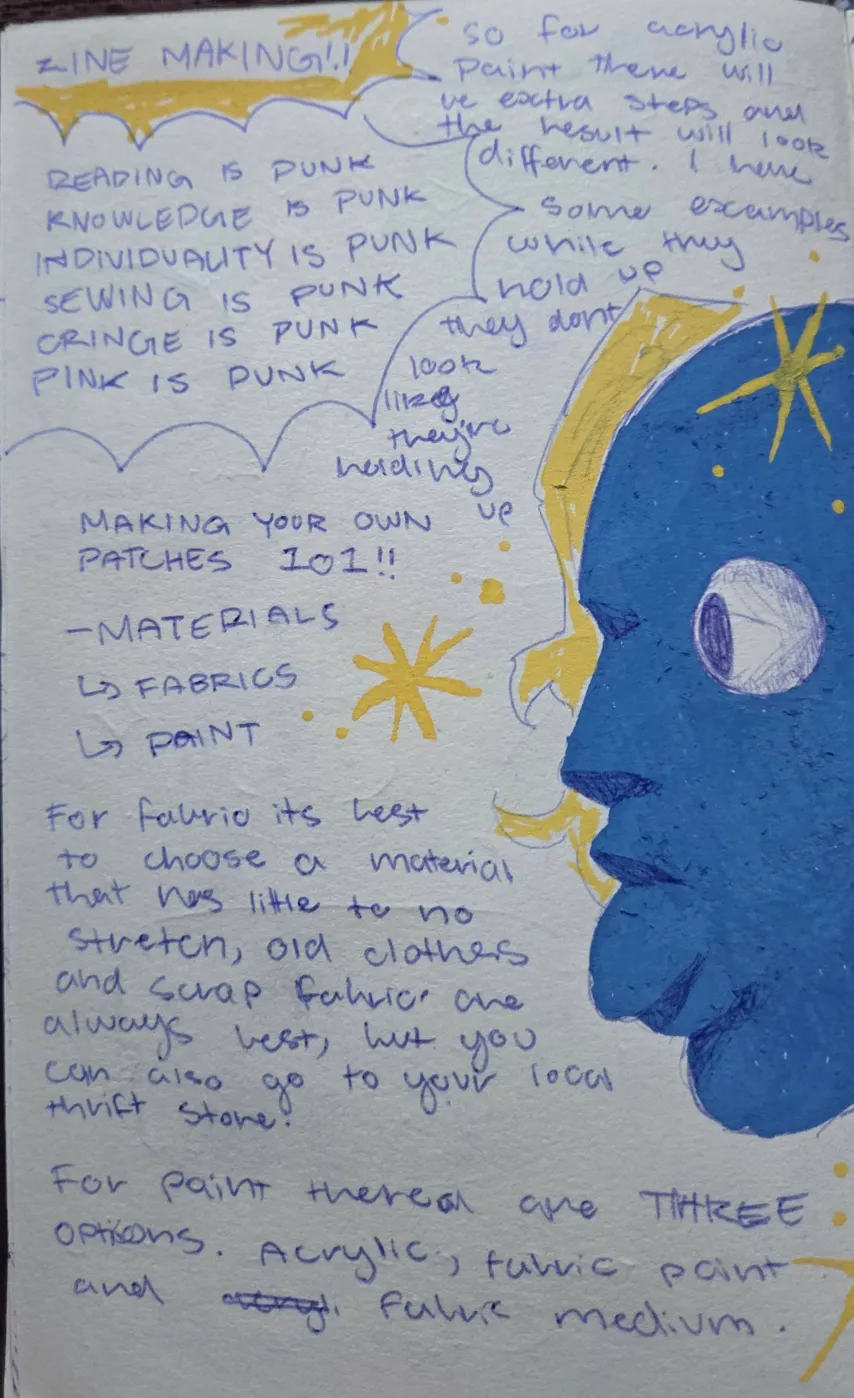 ZINE MAKING!!
READING IS PUNK
KNOWLEDGE IS PUNK
INDIVIDUALITY IS PUNK
SEWING IS PUNK
CRINGE IS PUNK
PINK IS PUNK
MAKING YOUR OWN
PATCHES 101!!
- MATERIALS
↳ FABRICS
↳ PAINT
For fabric its best
to choose a material
that has little to no
stretch, old clothers
and scrap fabric are
always best, but you
can also go to your local
thrift store.
For paint there are THREE
options. Acrylic, fabric paint
and fabric medium.
so for acrylic
paint there will
be extra steps and
the result will look
different. I have
some examples
while they
hold up
they dont
look
like
they're
holding
up